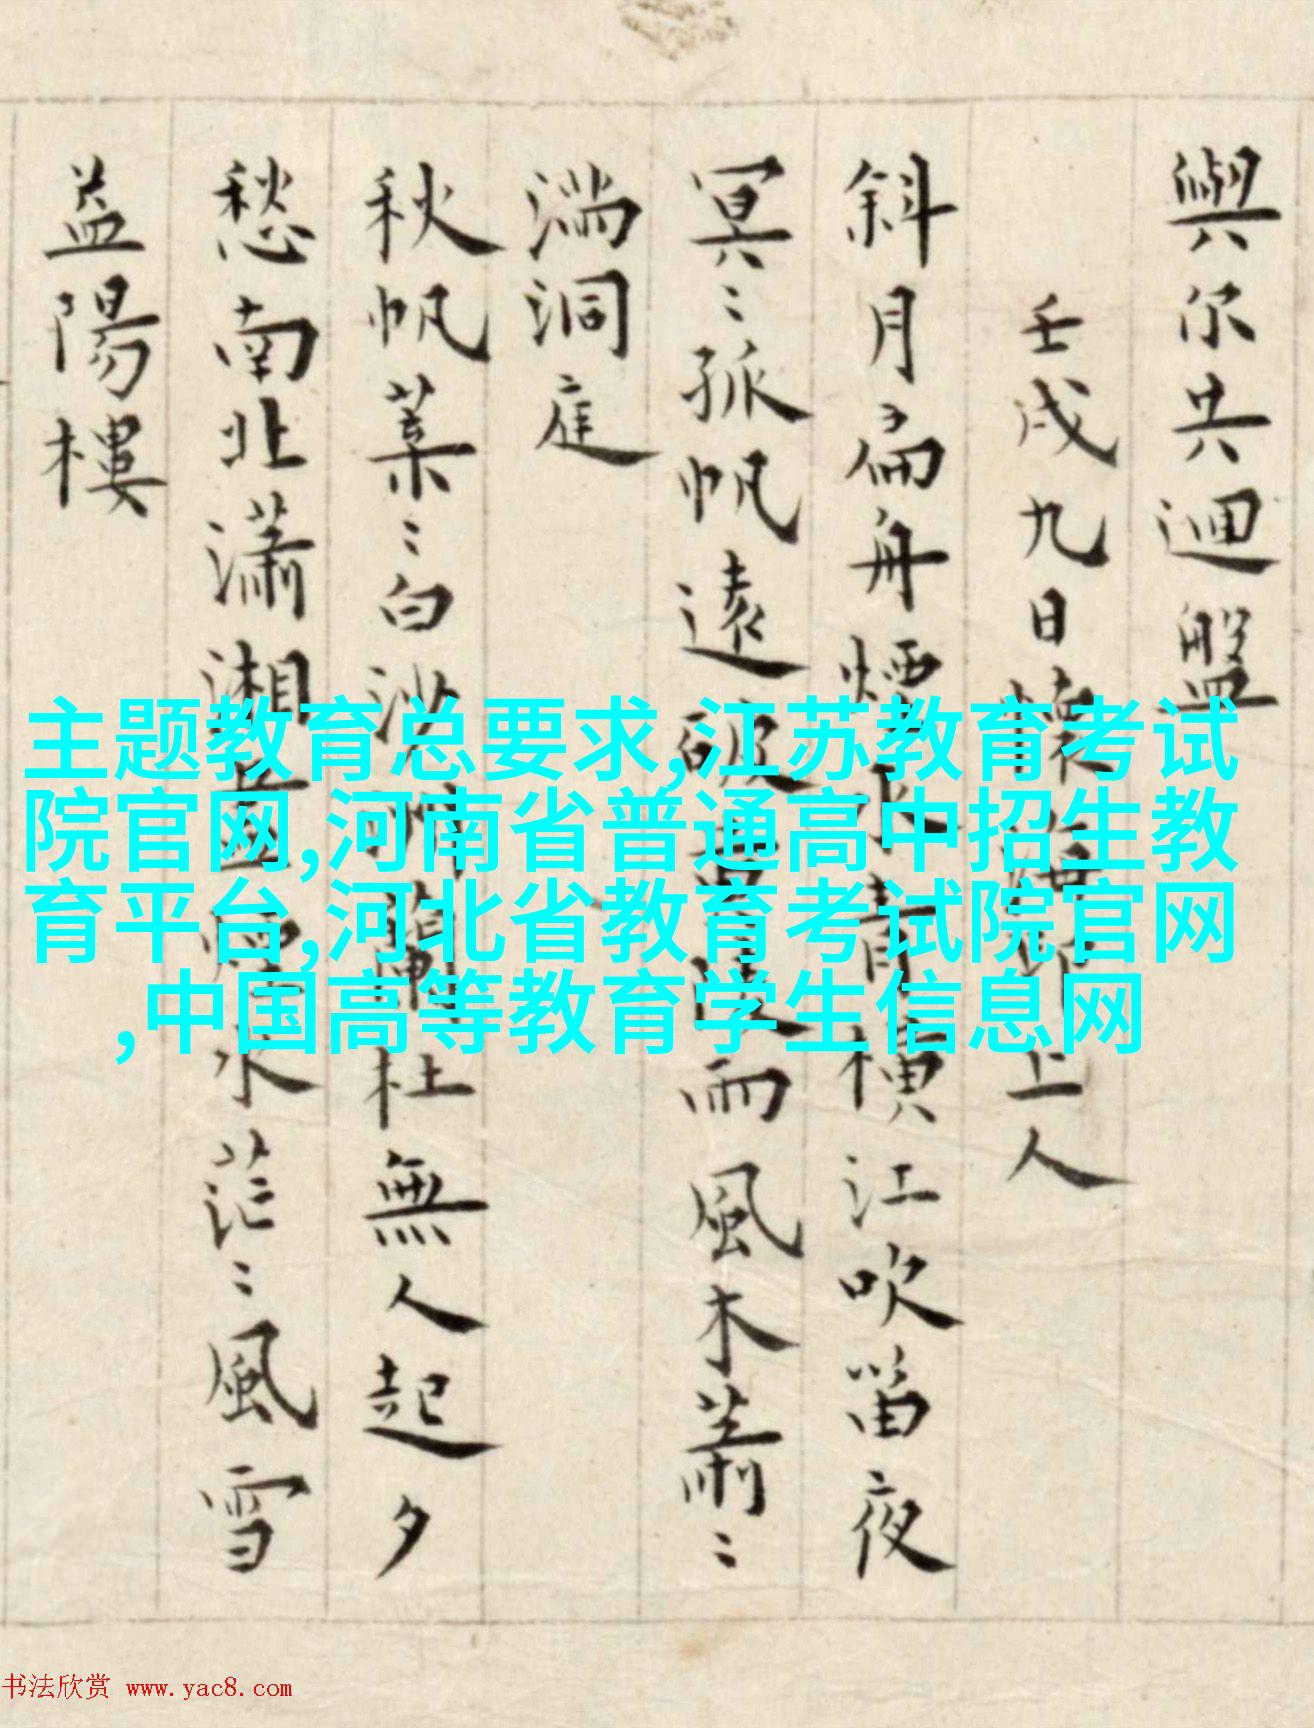 與尔共迴盤
壬戌九日懷海印上人
斜月扁舟煙水青橫江吹笛夜
冥〻孤帆遠破巴陵雨風木蕭〻
滿洞庭
秋帆葉〻白沙洲蘭杜無人起夕
愁南北瀟湘皆水茫〻風雪
益陽樓
主题教育总要求,江苏教育考试
院官网,河南省普通高中招生教
育平台,河北省教育考试院官网
,中国高等教育学生信息网
书法欣赏 www.yac8.com